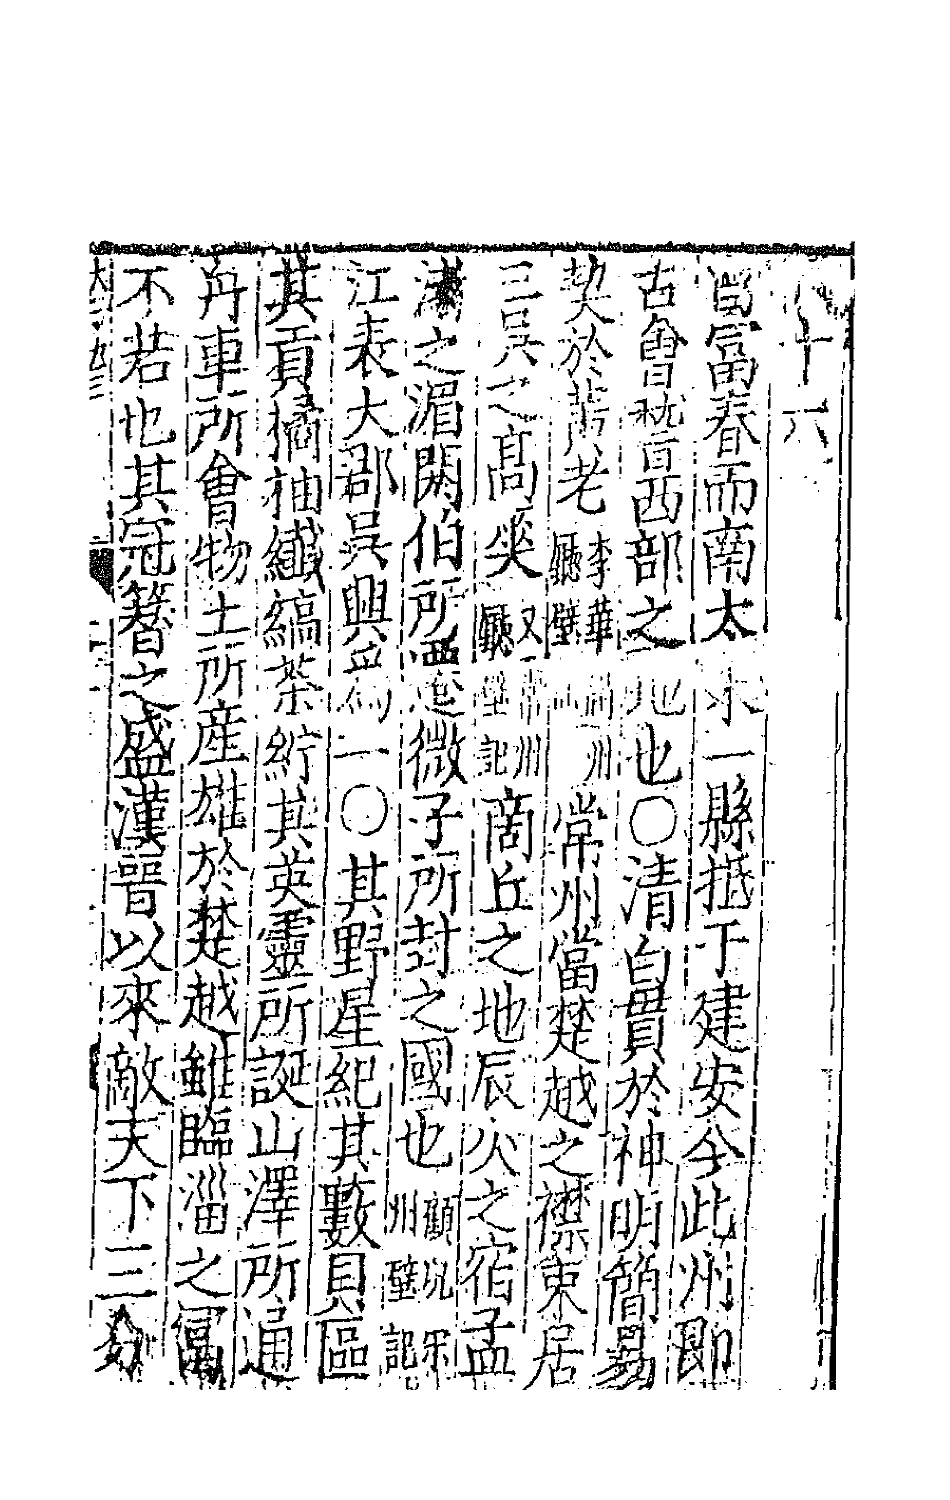 十六
富春而南太末一縣抵于建安今此州即
古會稽西部之地也〇清白貫於神明簡易
契於黃老李華常州廳壁常州當楚越之襟束居
三吳之高爽又常州廳壁記商丘之地辰火之宿孟
之湄閼伯所微子所封之國也顧況宋州壁記
江表大郡吳興為一〇其野星紀其藪具區
其貢橘柚纖縞茶紵其英靈所誕山澤所通
舟車所會物土所產雄於楚越雖臨淄之富
不若也其冠簪之盛漢晉以來敵天下三分